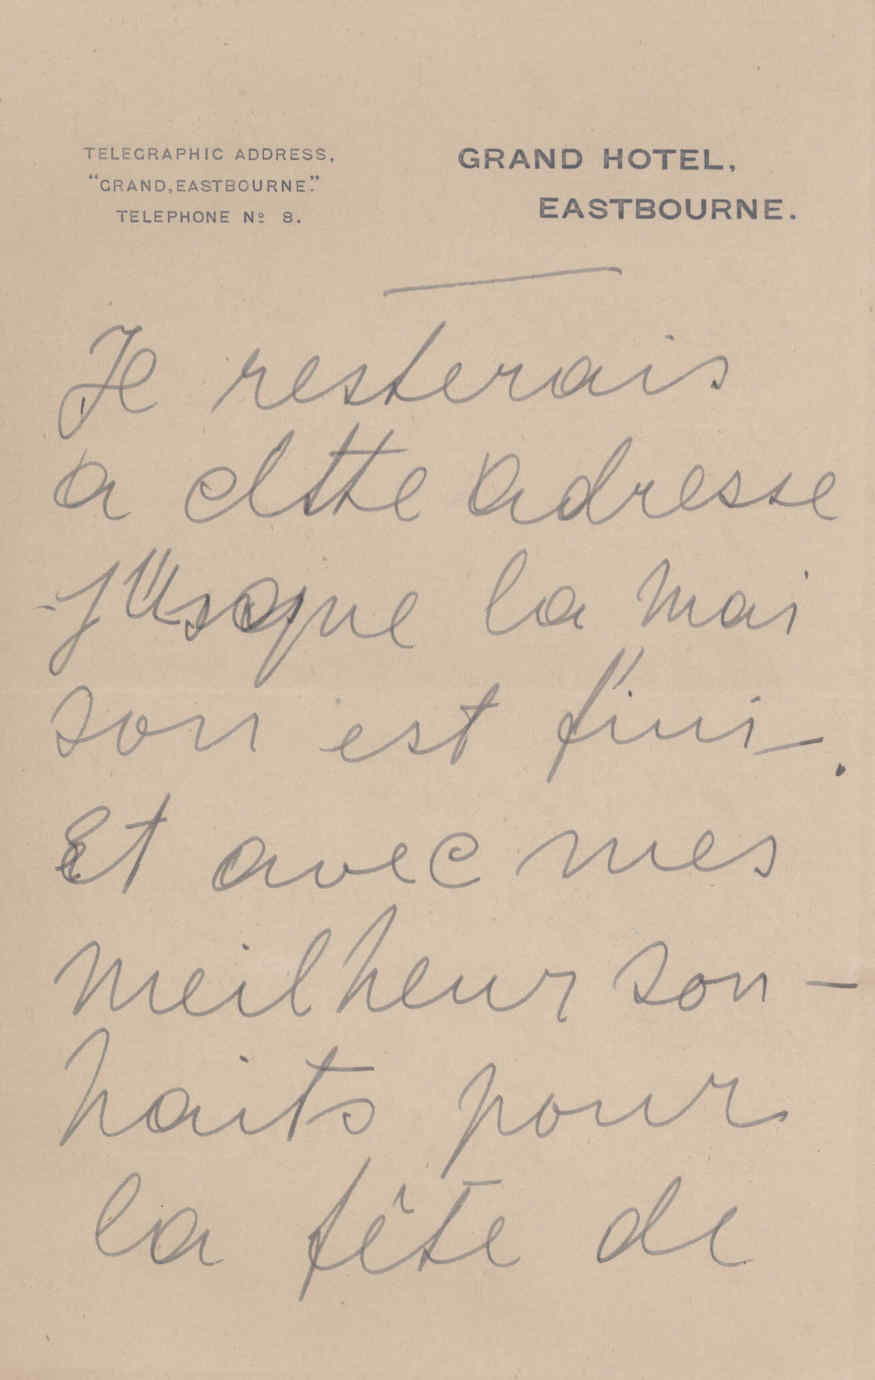 TELEGRAPHIC ADDRESS,
"GRAND, EASTBOURNE."
TELEPHONE Nº 8.
GRAND HOTEL,
EASTBOURNE.
Je resterais
a cette adresse
jusque la mai
son est fini.
Et avec mes
meilheur sou-
haits pour
la fête de